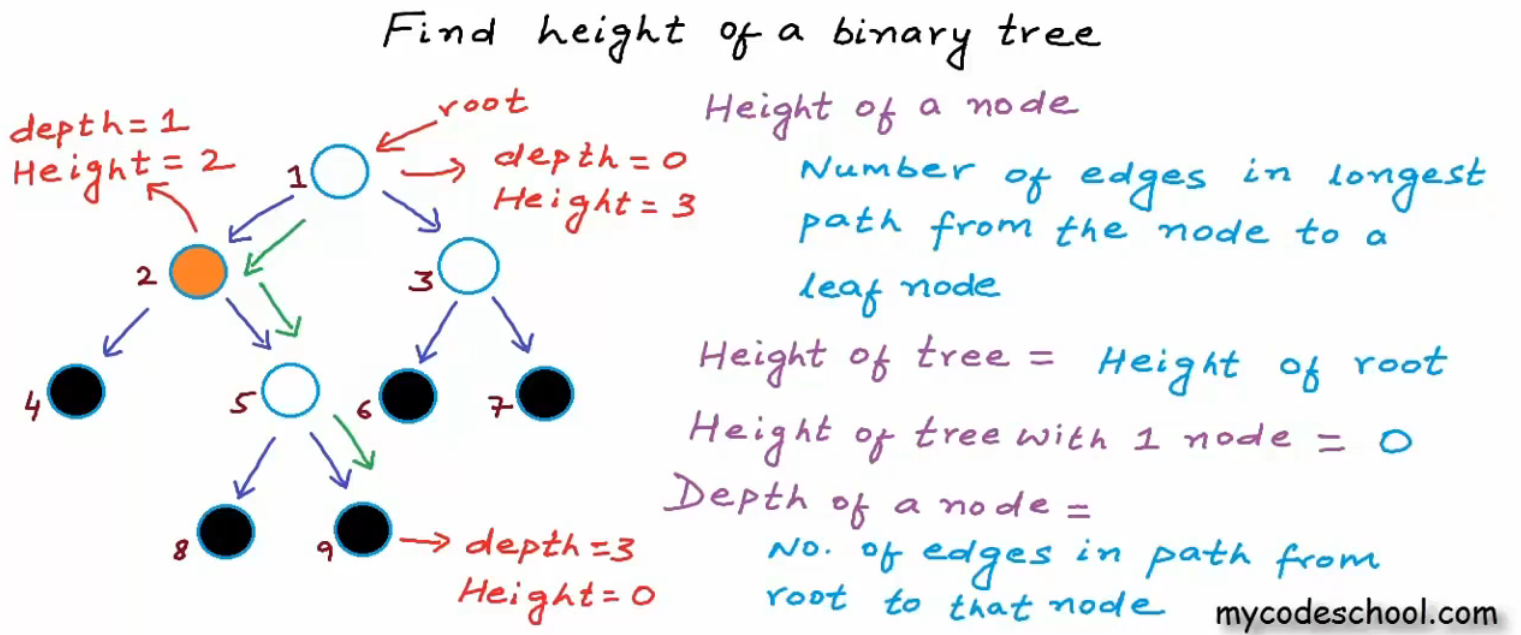 Find height of a binary tree
root
depth = 1
Height = 2
1
depth = 0
Height = 3
2
3
4
5
6
7
8
9
depth = 3
Height = 0
Height of a node
Number of edges in longest
path from the node to a
leaf node
Height of tree = Height of root
Height of tree with 1 node = 0
Depth of a node =
No. of edges in path from
root to that node
mycodeschool.com